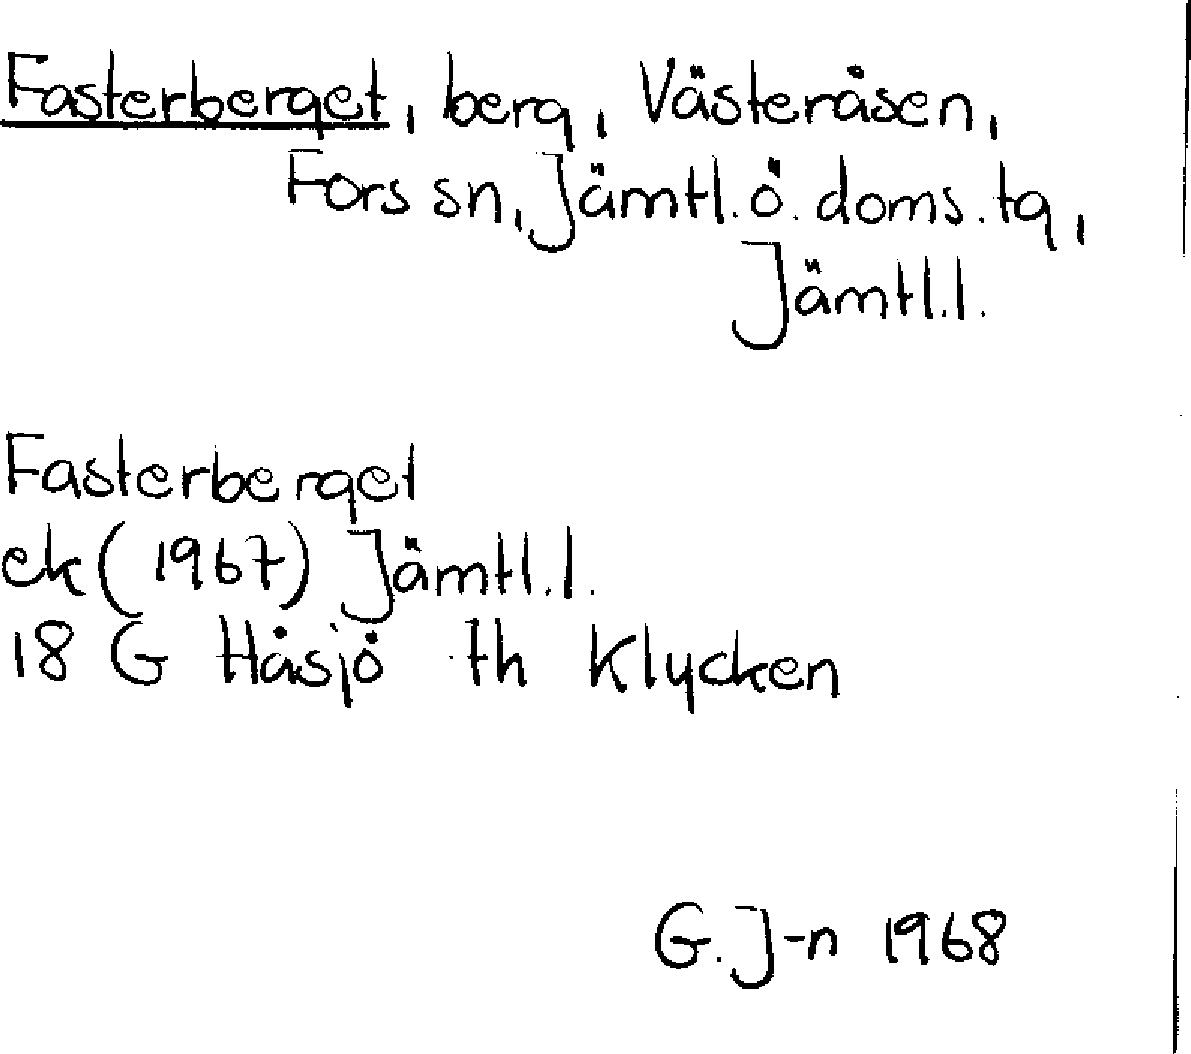 Fasterberget, berg, Västeråsen,
Fors sn, Jämtl. ö. doms. tg,
Jämtl.l.
Fasterberget
ek (1967) Jämtl.l.
18 G Håsjö th Klycken
G. J-n 1968